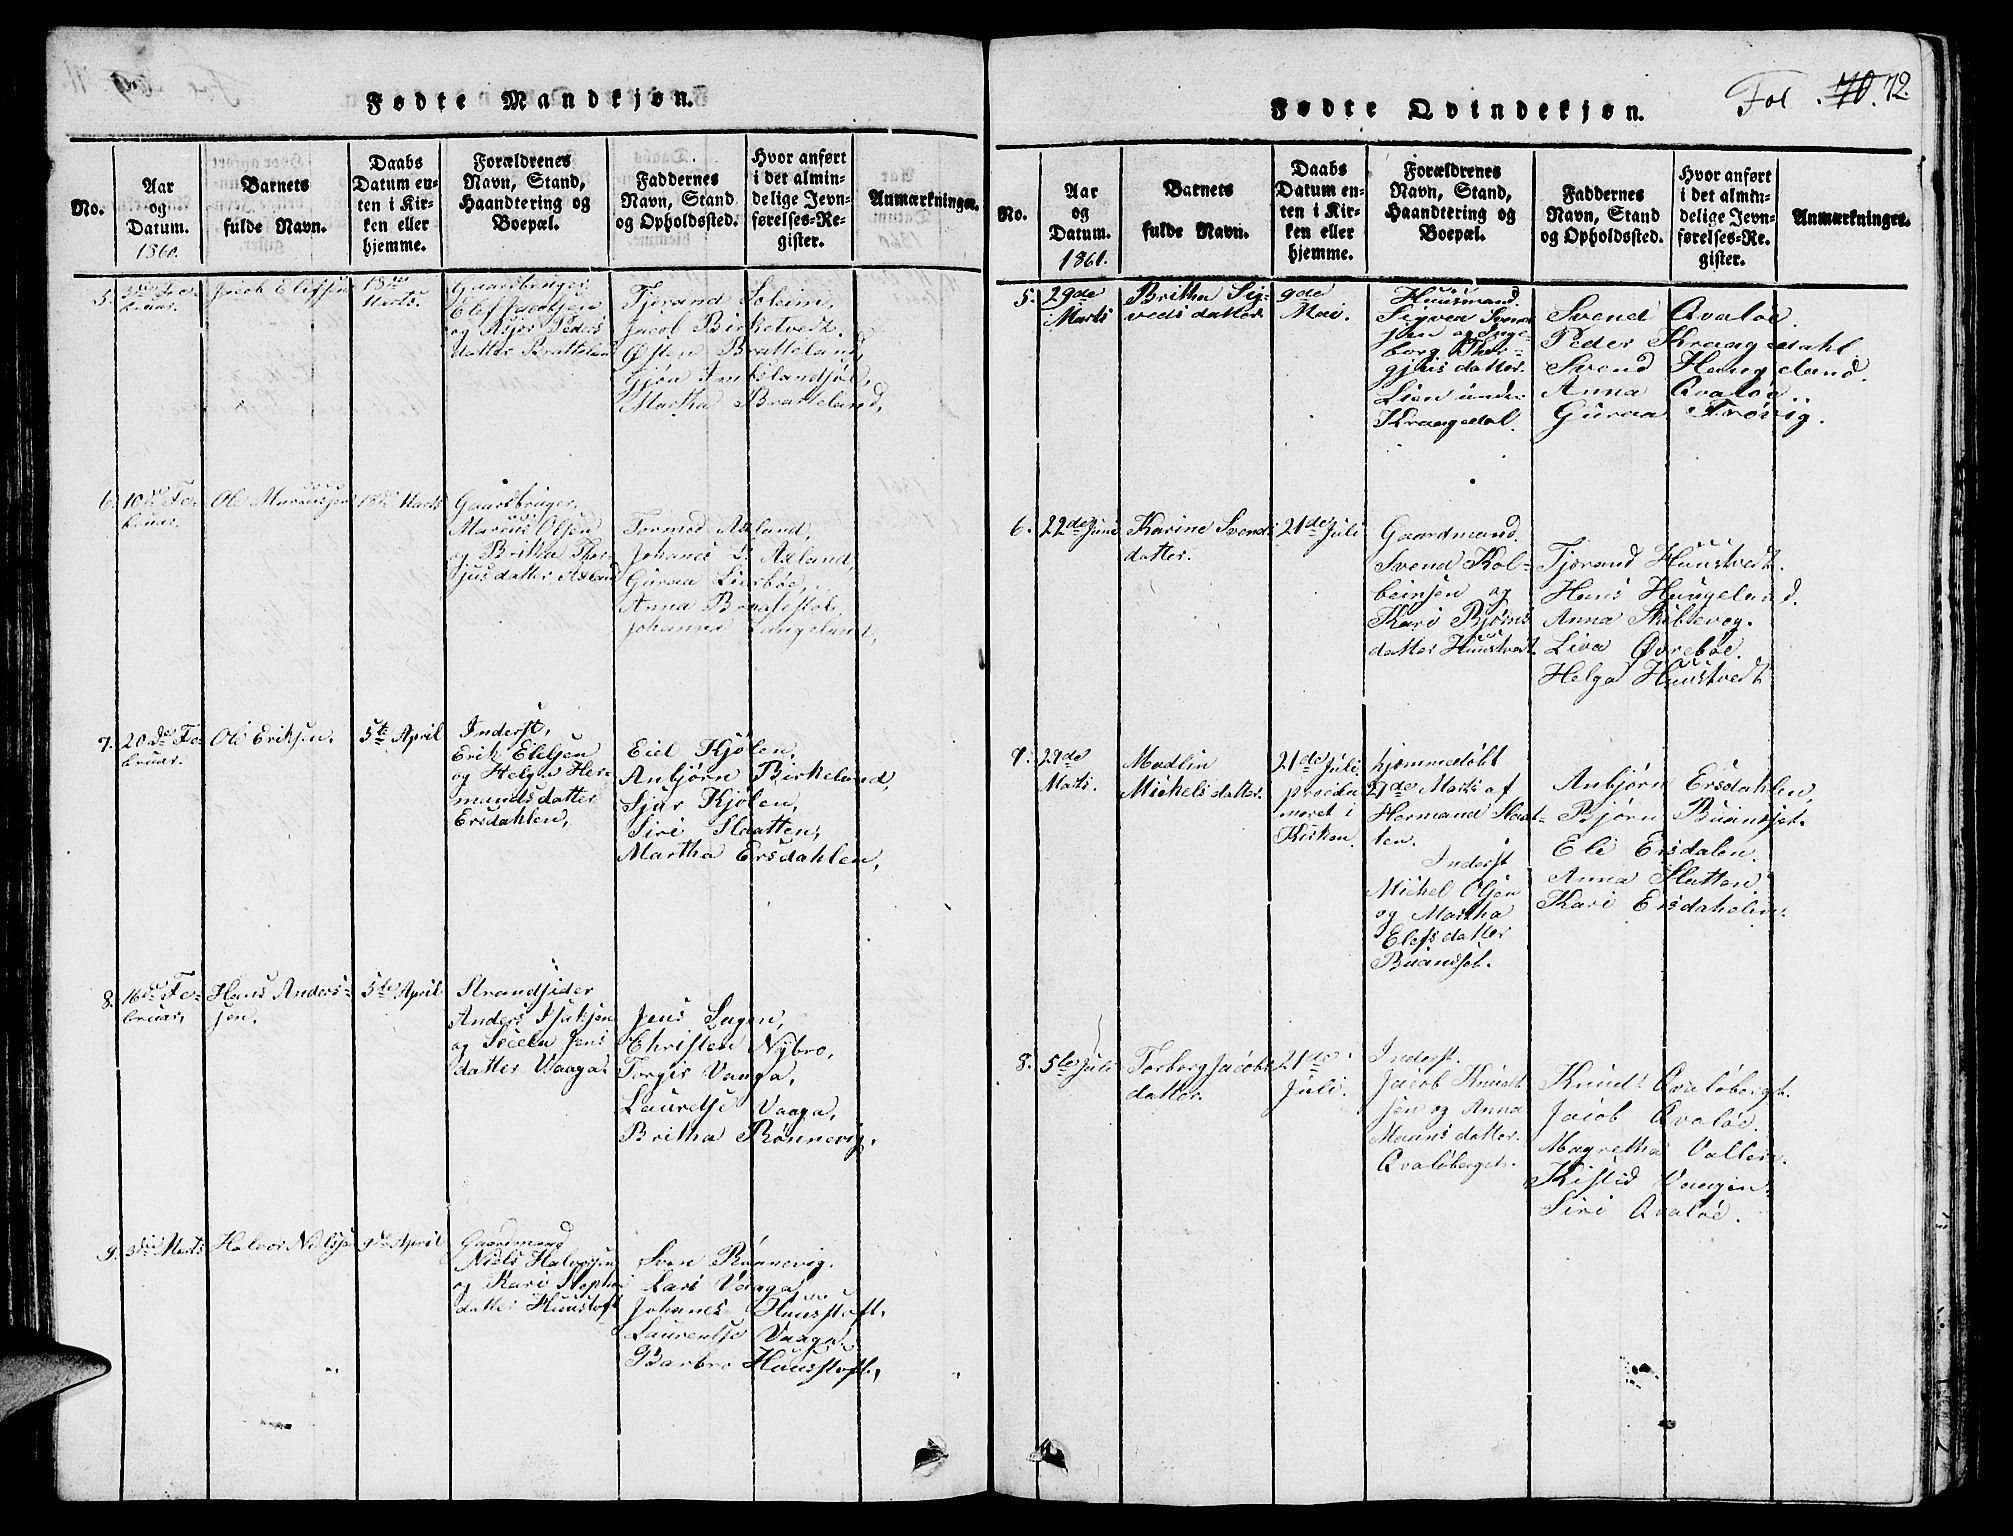 Fødte Mandkjøn.
No.
Aar
og
Datum.
1860.
Barnets
fulde Navn.
Daabs
Datum en-
ten i Kir-
ken eller
hjemme.
Forældrenes
Navn, Stand,
Haandtering og
Boepæl.
Faddernes
Navn, Stand
og Opholdssted.
Hvor anført
i det almin-
delige Jevn-
førelses-Re-
gister.
Anmærkninger.
5.
Fe-
bruar.
Jacob Elefsen
18de
Marts.
Gaardbruger
Elef Jacobsen
og Asjør Peders
datter Bratteland
Tjerand Soleim,
Jacob Birketvedt,
Østen Bratteland,
Gjøa Imslandsjøe,
Martha Bratteland,
6.
10de Fe-
bruar.
Ole Marcussen
18de Marts
Gaardbruger,
Marcus Olsen
og Britha Thor-
jus datter Axland
Tormod Axland,
Johanes S. Axland,
Guroa Lierbøe,
Anna Braatestøl,
Johanna Langeland,
7.
20de Fe-
bruar.
Ole Eriksen,
5te April
Inderst,
Erik Elefsen
og Helga Her-
munds datter
Ersdahlen,
Eiel Kjølen,
Anbjørn Birkeland,
Sjur Kjølen,
Siri Slaatten,
Martha Ersdahlen,
8.
16de Fe-
bruar,
Hans Anders-
sen.
5te April
Strandsider
Anders Isaksen
og Secela Jens
datter Vaaga.
Jens Sagen,
Christen Nybro,
Torgir Vaaga,
Lauretse Vaaga,
Britha Rønnevig.
9.
3die Marts
Halvor Nielssen
9de April
Gaardmand
Niels Halvorsen
og Kari Stephai
datter Huustoft
Sven Rønnevig.
Lars Vaaga,
Johanes Huusstoft,
Laurentse Vaaga
Barbro Huusstoft,
Fol. 70. 72.
Fødte Qvindekjøn.
No.
Aar
og
Datum.
1861.
Barnets
fulde Navn.
Daabs
Datum en-
ten i Kir-
ken eller
hjemme.
Forældrenes
Navn, Stand,
Haandtering og
Boepæl.
Faddernes
Navn, Stand
og Opholdssted.
Hvor anført
i det almin-
delige Jevn-
førelses-Re-
gister.
Anmærkninger.
5.
29de
Marts
Britha Sig-
veds datter
9de
Mai.
Huusmand.
Sigved Svend-
sen og Inge-
borg Thor-
gjuis datter.
Lien under
Kraagedal.
Svend Qvaløe.
Peder Kraagedahl
Svend Haugeland.
Anna Qvaløe.
Guroa Trøvig.
6.
22de Juni
Karine Svends
datter.
21de Juli
Gaardmand.
Svend Kol-
beinsen og
Kari Bjørns
datter Huustvedt.
Tjerand Huustvedt.
Hans Haugeland.
Anna Skiblevog.
Liva Øvrebøe.
Helga Huustvedt
7.
29de
Marts.
Madlin
Michels datter.
21de Juli
præsen-
teret i
Kirken.
hjemmedøbt
29de Marts af
Hermand Slaat-
ten.
Inderst
Michel Olsen
og Martha
Elefs datter
Buansjet.
Anbjørn Ersdahlen,
Bjørn Buansjet.
Eli Ersdalen.
Anna Slatten.
Kari Ersdahelen.
8.
5te Juli
Torborg Jacobs
datter.
21de
Juli.
Inderst.
Jacob Knudt-
sen og Anna
Mauns datter.
Qvaløberget.
Knud Qvaløberget.
Jacob Qvaløe.
Magretha Vallen.
Kistid Vaagen.
Siri Qvaløe.